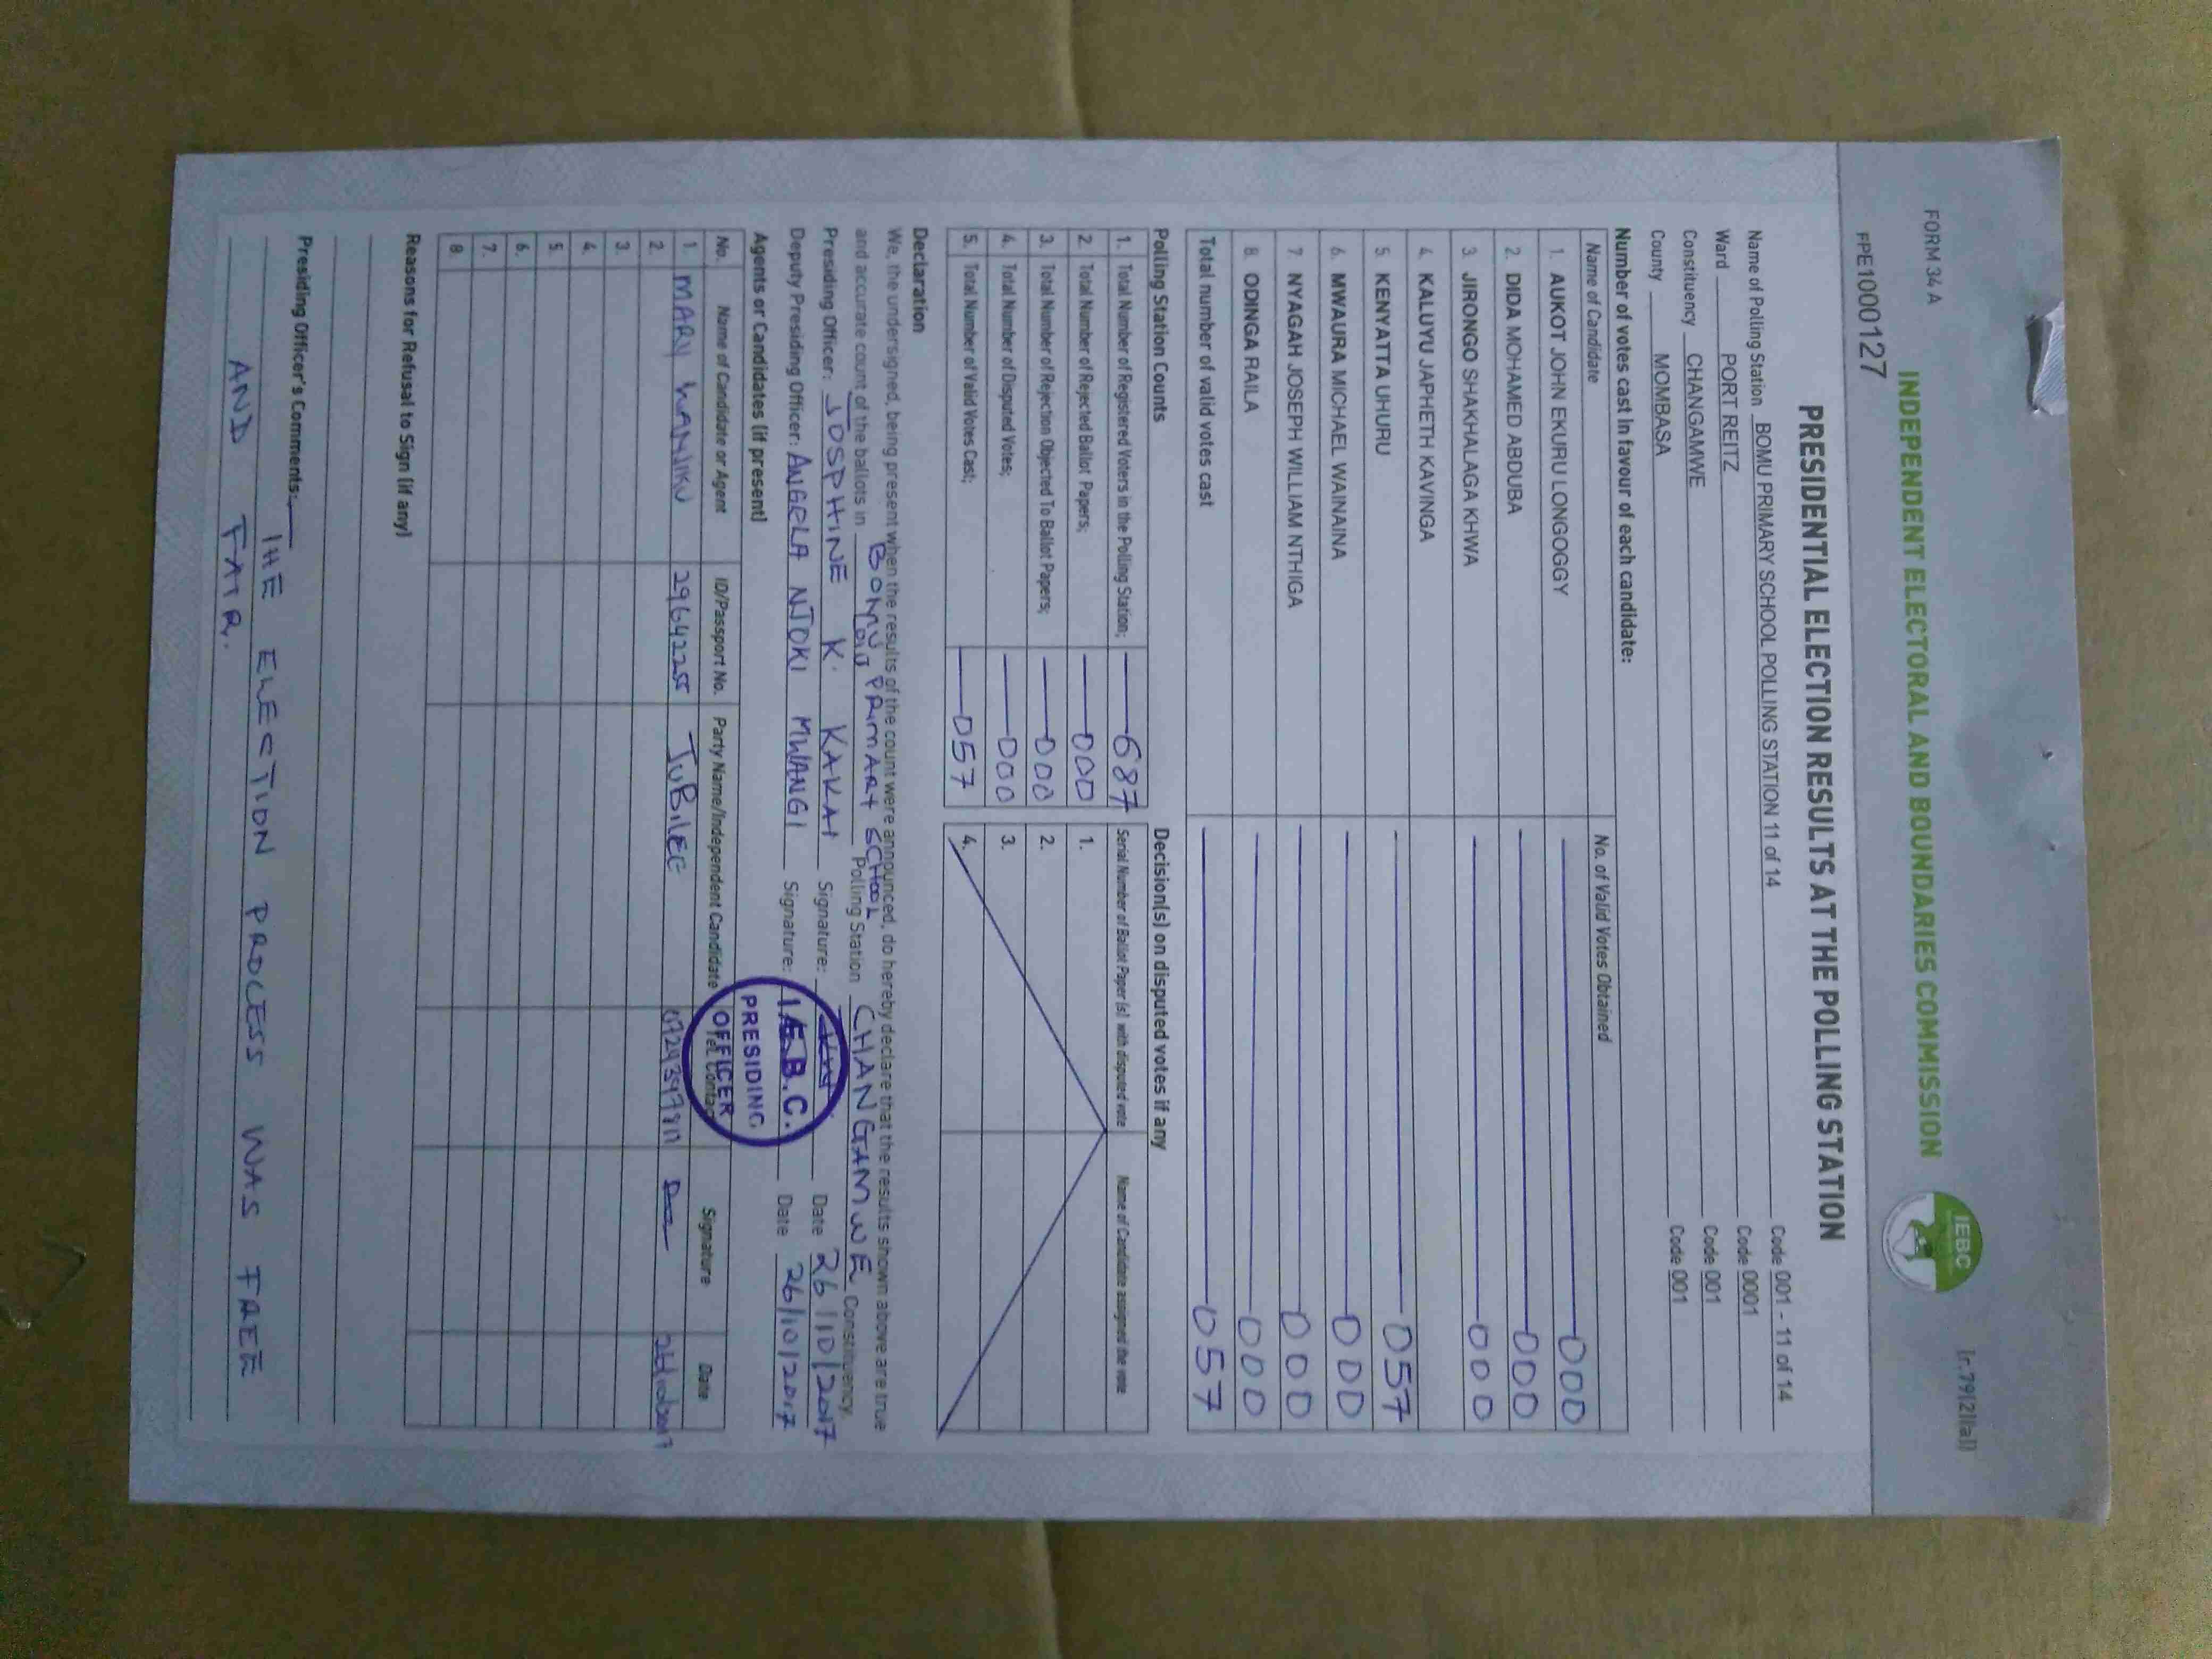 FORM 34 A
[r.79(2)(a)]
INDEPENDENT ELECTORAL AND BOUNDARIES COMMISSION
IEBC
FPE1000127
PRESIDENTIAL ELECTION RESULTS AT THE POLLING STATION
Name of Polling Station BOMU PRIMARY SCHOOL POLLING STATION 11 of 14 Code 001 - 11 of 14
Ward PORT REITZ Code 0001
Constituency CHANGAMWE Code 001
County MOMBASA Code 001
Number of votes cast in favour of each candidate:
Name of Candidate No. of Valid Votes Obtained
1. AUKOT JOHN EKURU LONGOGGY 000
2. DIDA MOHAMED ABDUBA 000
3. JIRONGO SHAKHALAGA KHWA 000
4. KALUYU JAPHETH KAVINGA
5. KENYATTA UHURU 057
6. MWAURA MICHAEL WAINAINA 000
7. NYAGAH JOSEPH WILLIAM NTHIGA 000
8. ODINGA RAILA 000
Total number of valid votes cast 057
Polling Station Counts
1. Total Number of Registered Voters in the Polling Station; 687
2. Total Number of Rejected Ballot Papers; 000
3. Total Number of Rejection Objected To Ballot Papers; 000
4. Total Number of Disputed Votes; 000
5. Total Number of Valid Votes Cast; 057
Decision(s) on disputed votes if any
Serial Number of Ballot Paper (s) with disputed vote Name of Candidate assigned the vote
1.
2.
3.
4.
Declaration
We, the undersigned, being present when the results of the count were announced, do hereby declare that the results shown above are true
and accurate count of the ballots in BOMU PRIMARY SCHOOL Polling Station CHANGAMWE Constituency.
Presiding Officer: JOSPHINE K. KAKAI Signature: Date 26/10/2017
Deputy Presiding Officer: ANGELA NJOKI MWANGI Signature: Date 26/10/2017
I.E.B.C.
PRESIDING
OFFICER
Agents or Candidates (if present)
No. Name of Candidate or Agent ID/Passport No. Party Name/Independent Candidate Tel. Contact Signature Date
1. MARY WANJIKU 29642255 JUBILEE
2.
3.
4.
5.
6.
7.
8.
Reasons for Refusal to Sign (if any)
Presiding Officer's Comments:
THE ELECTION PROCESS WAS FREE
AND FAIR.